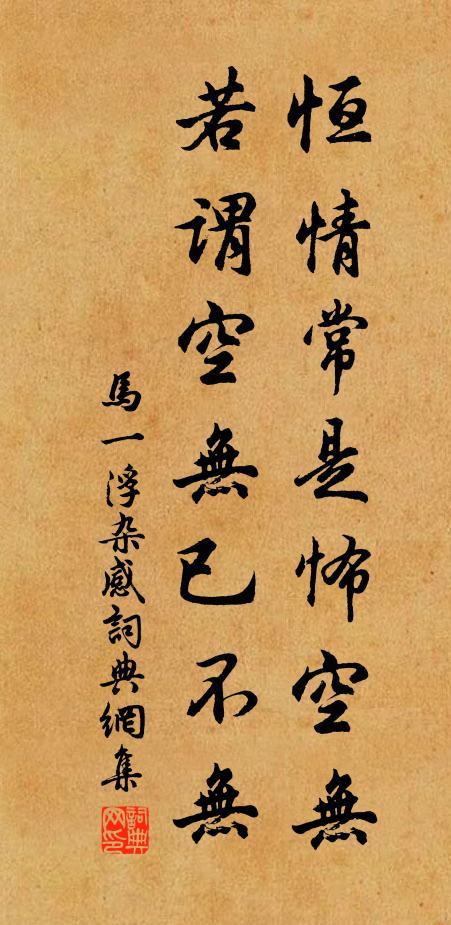 恒情常是怖空無
若謂空無已不無
馬一浮杂感詞典網集
詞典网印